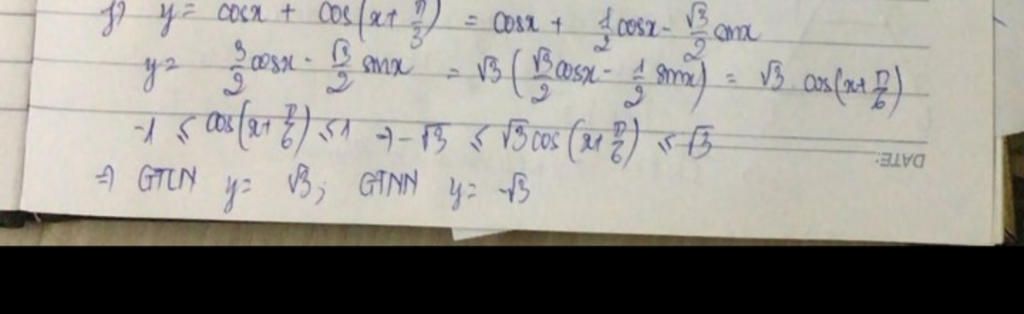 f) y = cosx + cos(x + π/3) = cosx + 1/2 cosx - √3/2 sinx
y = 3/2 cosx - √3/2 sinx = √3 (√3/2 cosx - 1/2 sinx) = √3 cos(x + π/6)
-1 ≤ cos(x + π/6) ≤ 1 → -√3 ≤ √3 cos(x + π/6) ≤ √3
DATE:
⇒ GTLN y = √3; GTNN y = -√3